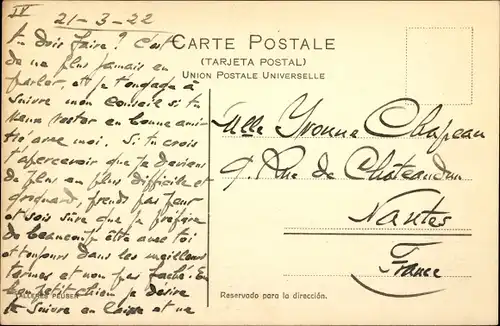 IV
21-3-22
tu dois faire? C'est
de ne plus jamais en
parler, et je t'engage à
suivre mon conseil si tu
veux rester en bonne ami-
tié avec moi. Si tu crois
t'apercevoir que je deviens
de plus en plus difficile et
grognard, prends pas peur
et sois sûre que je préfère
de beaucoup être avec toi
et toujours dans les meilleurs
termes et non pas fâché. En
bon petit chien je désire
te suivre en laisse et ne
CARTE POSTALE
(TARJETA POSTAL)
UNION POSTALE UNIVERSELLE
Mlle Yvonne Chapeau
9. Rue de Châteaudun
Nantes
France
TALLERES PEUSER
Reservado para la dirección.